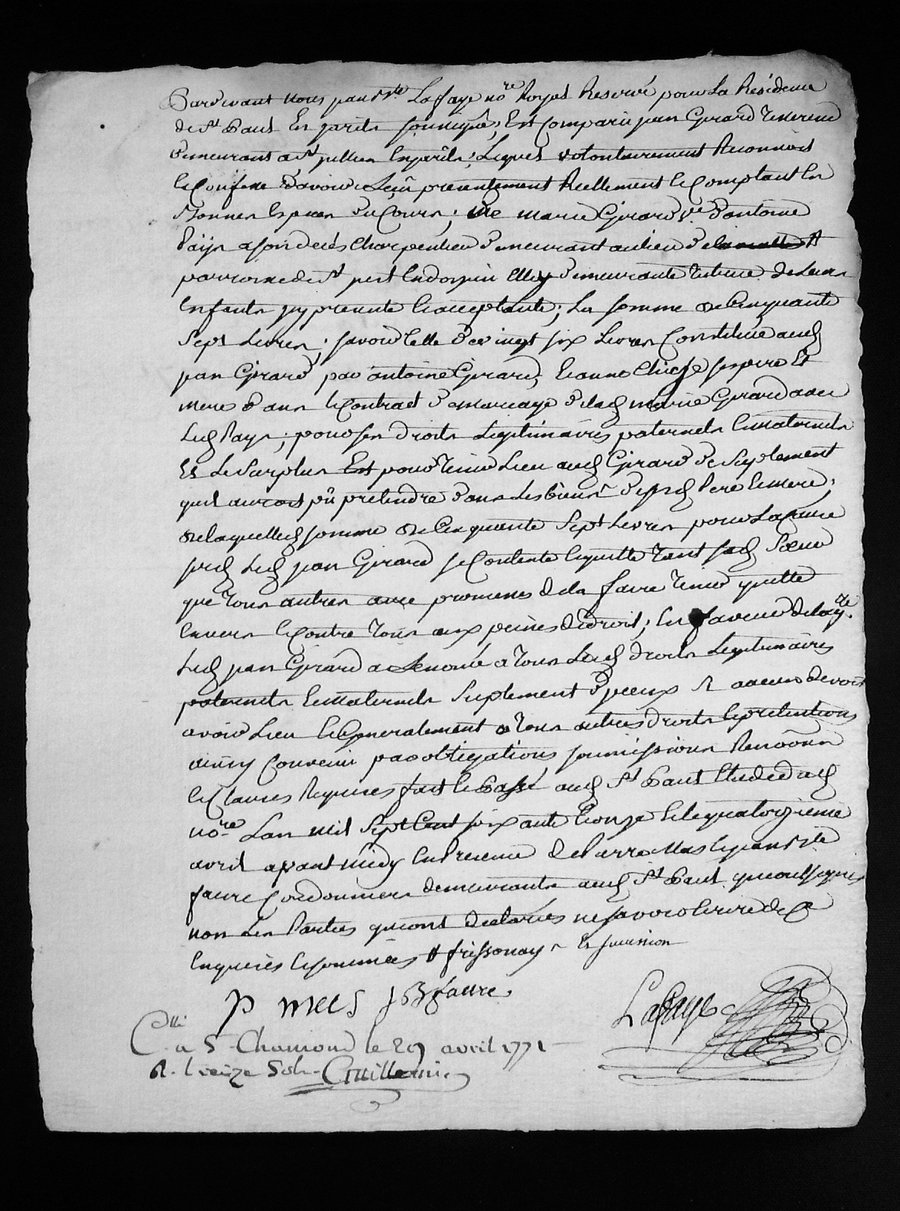 Pardevant nous jean bte Lafaye nore Royal Reservé pour la Résidence
de st Paul En jarêts soussigné, Est Comparu jean Girard tisserand
demeurant a st jullien En jarêts, Lequel volontairement Reconnoit
et Confesse d'avoir Reçu présentement Réellement et Comptant En
Bonnes Espèces du Cours, de marie Girard ve d'antoine
Paÿs a son décès Charpentier demeurant au lieu de
parroisse de st demeurante tutrice de Leurs
Enfants jcy présente et acceptante, La somme de Cinquante
Sept Livres, savoir Celle de vingt six Livres Constituée aud
jean Girard, par antoine Girard, et anne ses père Et
mère dans le Contract de mariage de lad marie Girard avec
Led Pays, pour ses droits Legitimaires paternels et maternels
Et Le Surplus Est pour tenir Lieu aud Girard de Suplement
quil auroit pû prétendre dans Les biens de sesd Père et mère,
de laquelle somme de Cinquante Sept Livres pour La cause
susd Led jean Girard se Contente et quitte tant sad Sœur
que tous autres avec promesses de les faire tenir quitte
Envers et Contre tous aux peines de droit, En faveur de la
Led jean Girard a Renoncé a tous Lesd droits Légitimaires
paternels et maternels Suplement d'yceux
avoir Lieu et Generalement a tous autres droits et prétentions
ainsy Convenu par obligations soumissions Renōōns
et Clauses Requises fait et Passé aud St Paul Etude dud
nore Lan mil Sept Cent soixante et onze et le quatorzième
avril avant midy En Présence de Pierre Mas et jean bte
faure Cordonniers demeurants aud St Paul qui ont signé
non Les Parties qui ont déclarées ne savoir Ecrire de Ce
Enquises et sommées En jussion
P mas J B faure
Lafaye
Clli
C. a St Chamond le 29 avril 1771
R. treize sols Guillemin